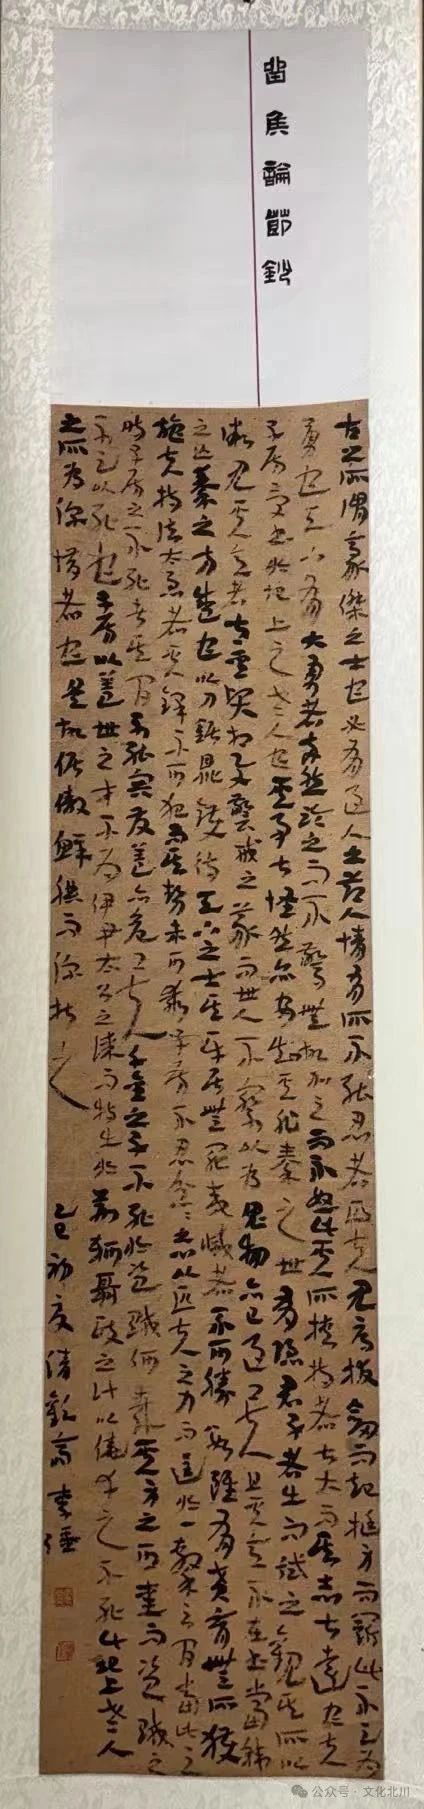 留侯論節鈔
古之所謂豪傑之士也必有過人之節人情有所不能忍者匹夫見辱拔劍而起挺身而鬥此不足為
勇也天下有大勇者卒然臨之而不驚無故加之而不怒此其人所挾持者甚大而其志甚遠也夫
子房受書於圯上之老人也其事甚怪然亦安知其非秦之世有隱君子者出而試之觀其所以
微見其意者皆聖賢相與警戒之義而世人不察以為鬼物亦已過矣且其意不在書當韓
之亡秦之方盛也以刀鋸鼎鑊待天下之士其平居無罪夷滅者不可勝數雖有賁育無所獲
施夫持法太急者其鋒不可犯而其勢未可乘子房不忍忿忿之心以匹夫之力而逞於一擊之間當此之
時子房之不死者其間不能容髮蓋亦危矣千金之子不死於盜賊何者其身之可愛而盜賊之
不足以死也子房以蓋世之才不為伊尹太公之謀而特出於荊軻聶政之計以僥倖於不死此圯上老人
之所為深惜者也是故倨傲鮮腆而深折之
乙巳初夏
公众号·文化北川